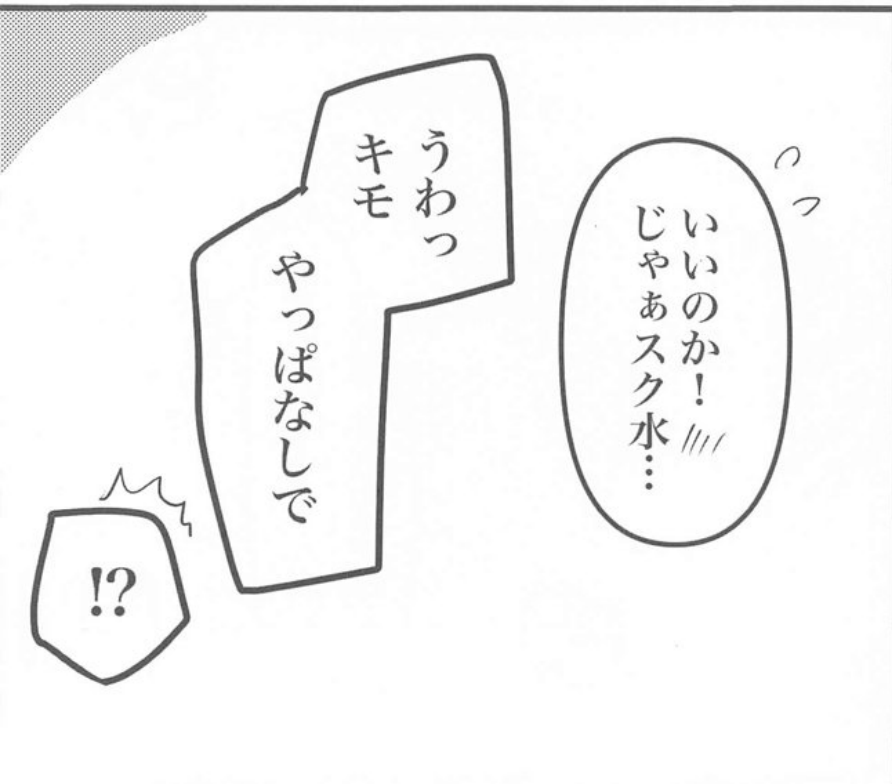 いいのか！
じゃぁスク水…
うわっ
キモ
やっぱなしで
!?